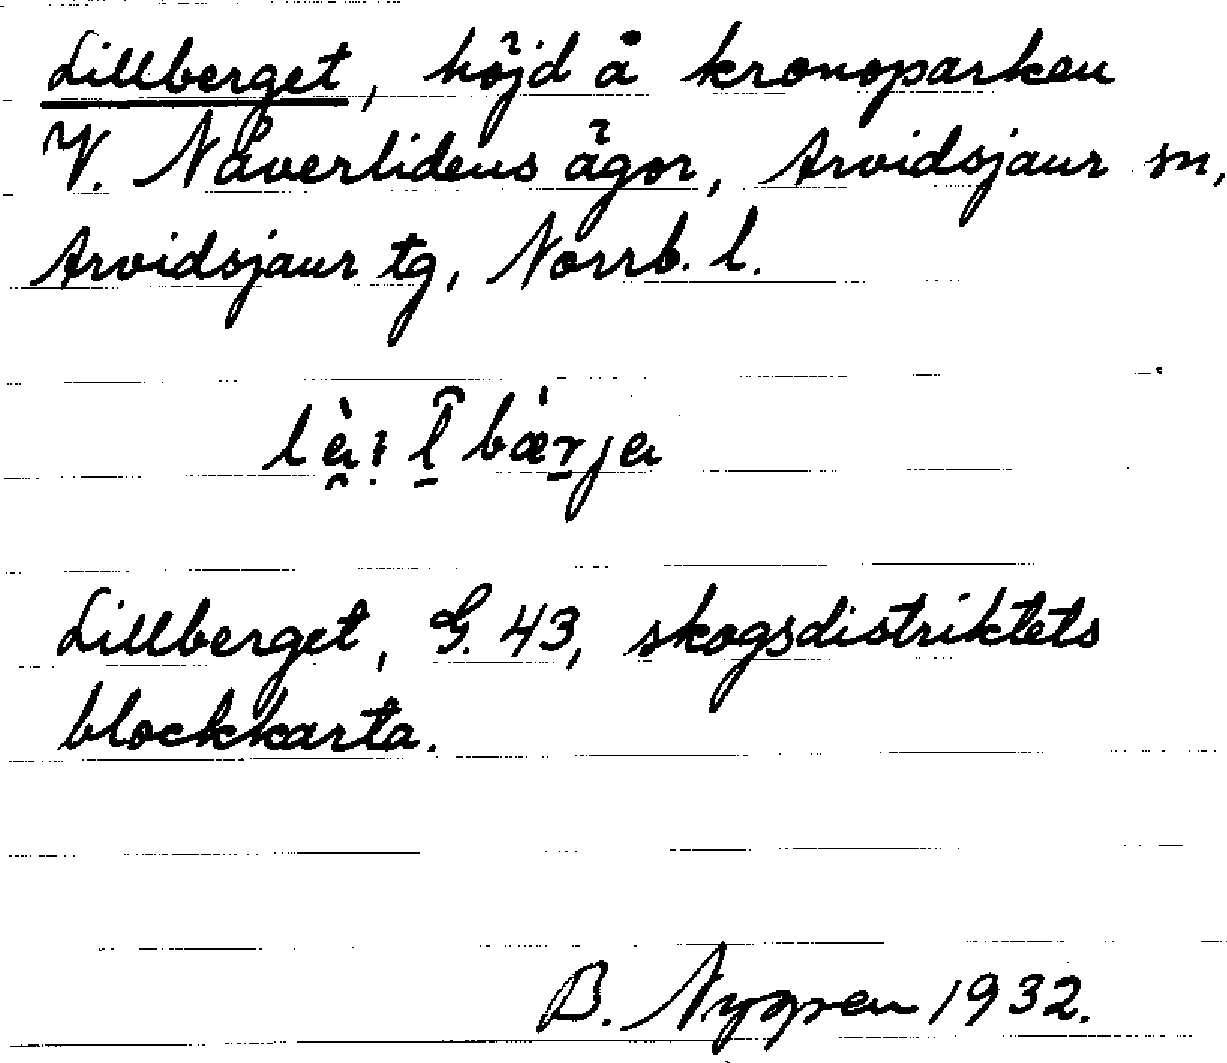 Lillberget, höjd å kronoparken
V. Nåverlidens ägor, Arvidsjaur sn,
Arvidsjaur tg, Norrb. l.
Lillberget, G. 43, skogsdistriktets
blockkarta.
B. Nygren 1932.